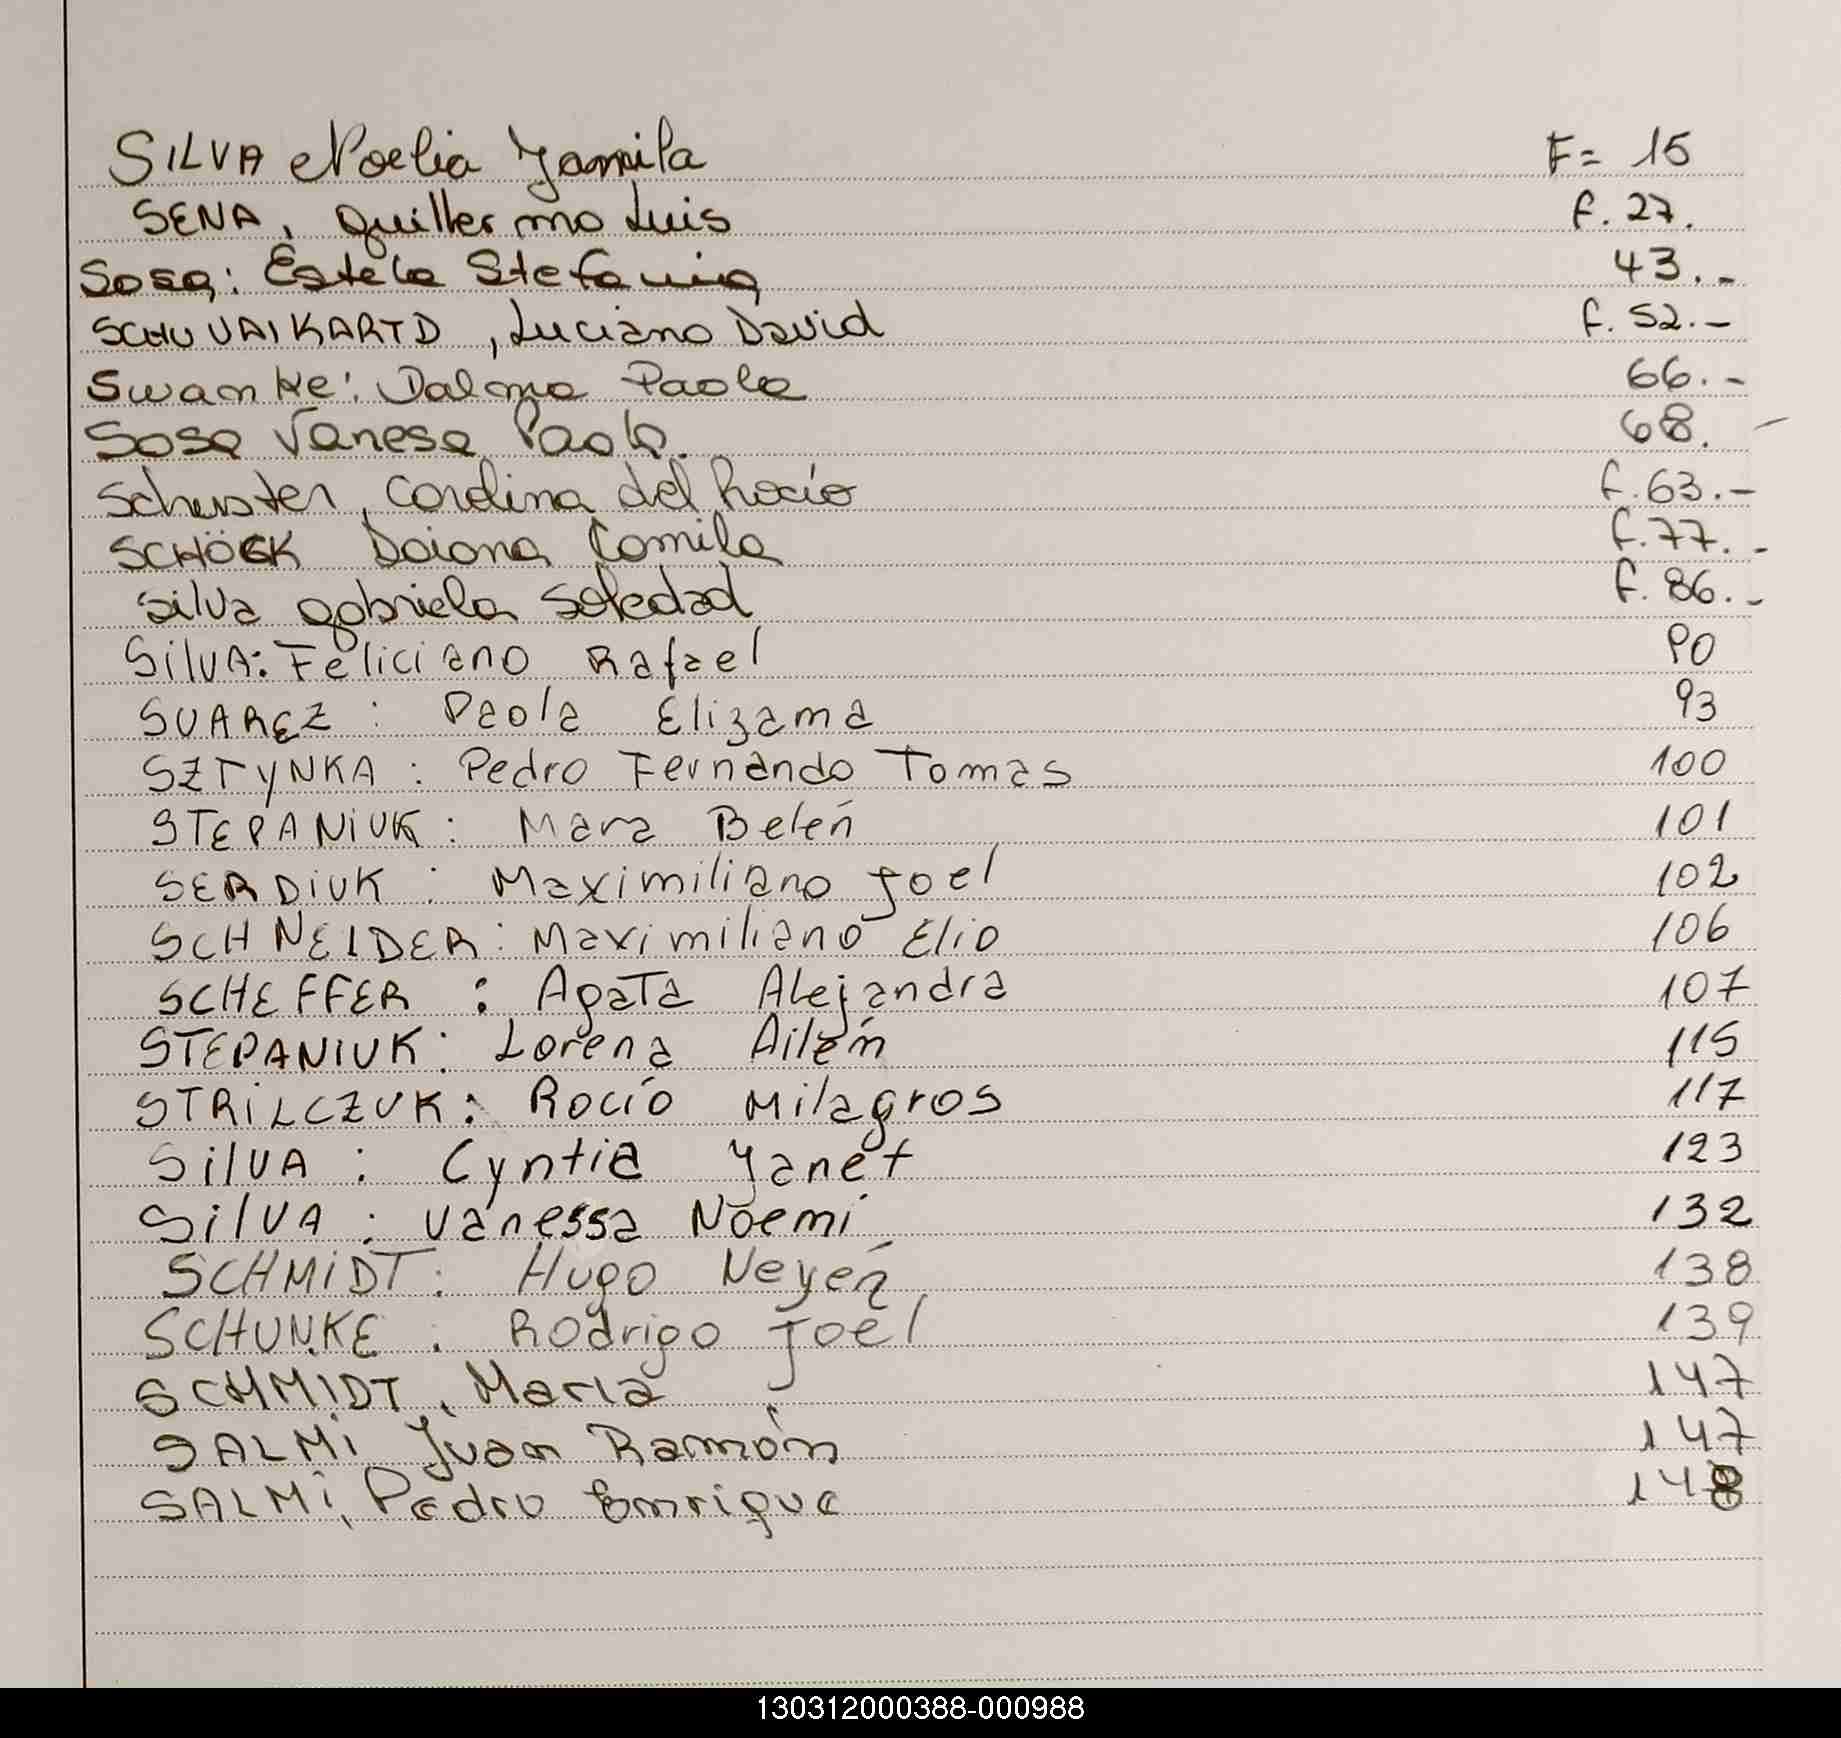 SILVA Noelia Yamila F= 15
SENA, Guillermo Luis f. 27.
Sosa: Estela Stefania 43.-
SCHUVAIKARTD, Luciano David f. 52.-
Swanke: Dalma Paola 66.-
Sosa Vanesa Paola. 68. -
Schuster, Carolina del Rocío f. 63.-
SCHÖCK Daiana Camila f. 77.-
Silva gabriela Soledad f. 86.-
SilVA: Feliciano Rafael 90
SUAREZ: Paola Elizama 93
SZTYNKA: Pedro Fernando Tomas 100
STEPANiUK: Mara Belén 101
SERDiUK: Maximiliano Joel 102
SCHNEIDER: Maximiliano Elio 106
SCHEFFER: Agata Alejandra 107
STEPANIUK: Lorena Ailén 115
STRiLCZUK: Rocío Milagros 117
SilVA: Cyntia Yanet 123
SilVA: Vanessa Noemí 132
SCHMiDT: Hugo Neyén 138
SCHUNKE: Rodrigo Joel 139
SCHMIDT, María 147
SALMi, Juan Ramón 147
SALMi, Pedro Enrique 148
130312000388-000988